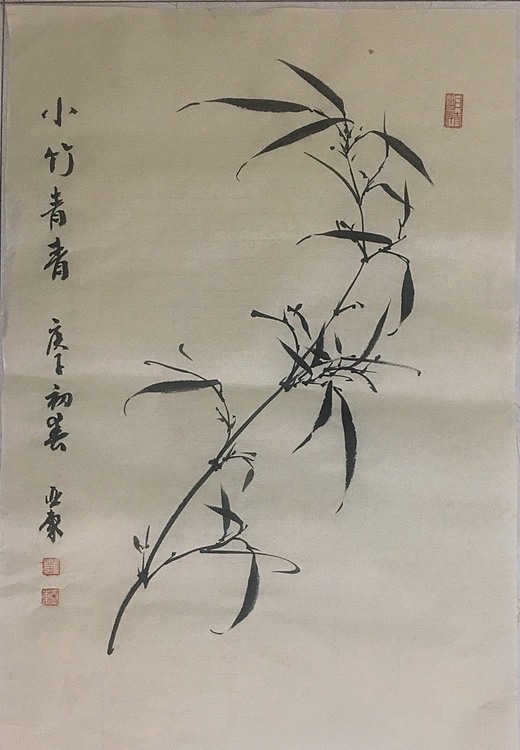 小竹青青 庚子初春 亚東